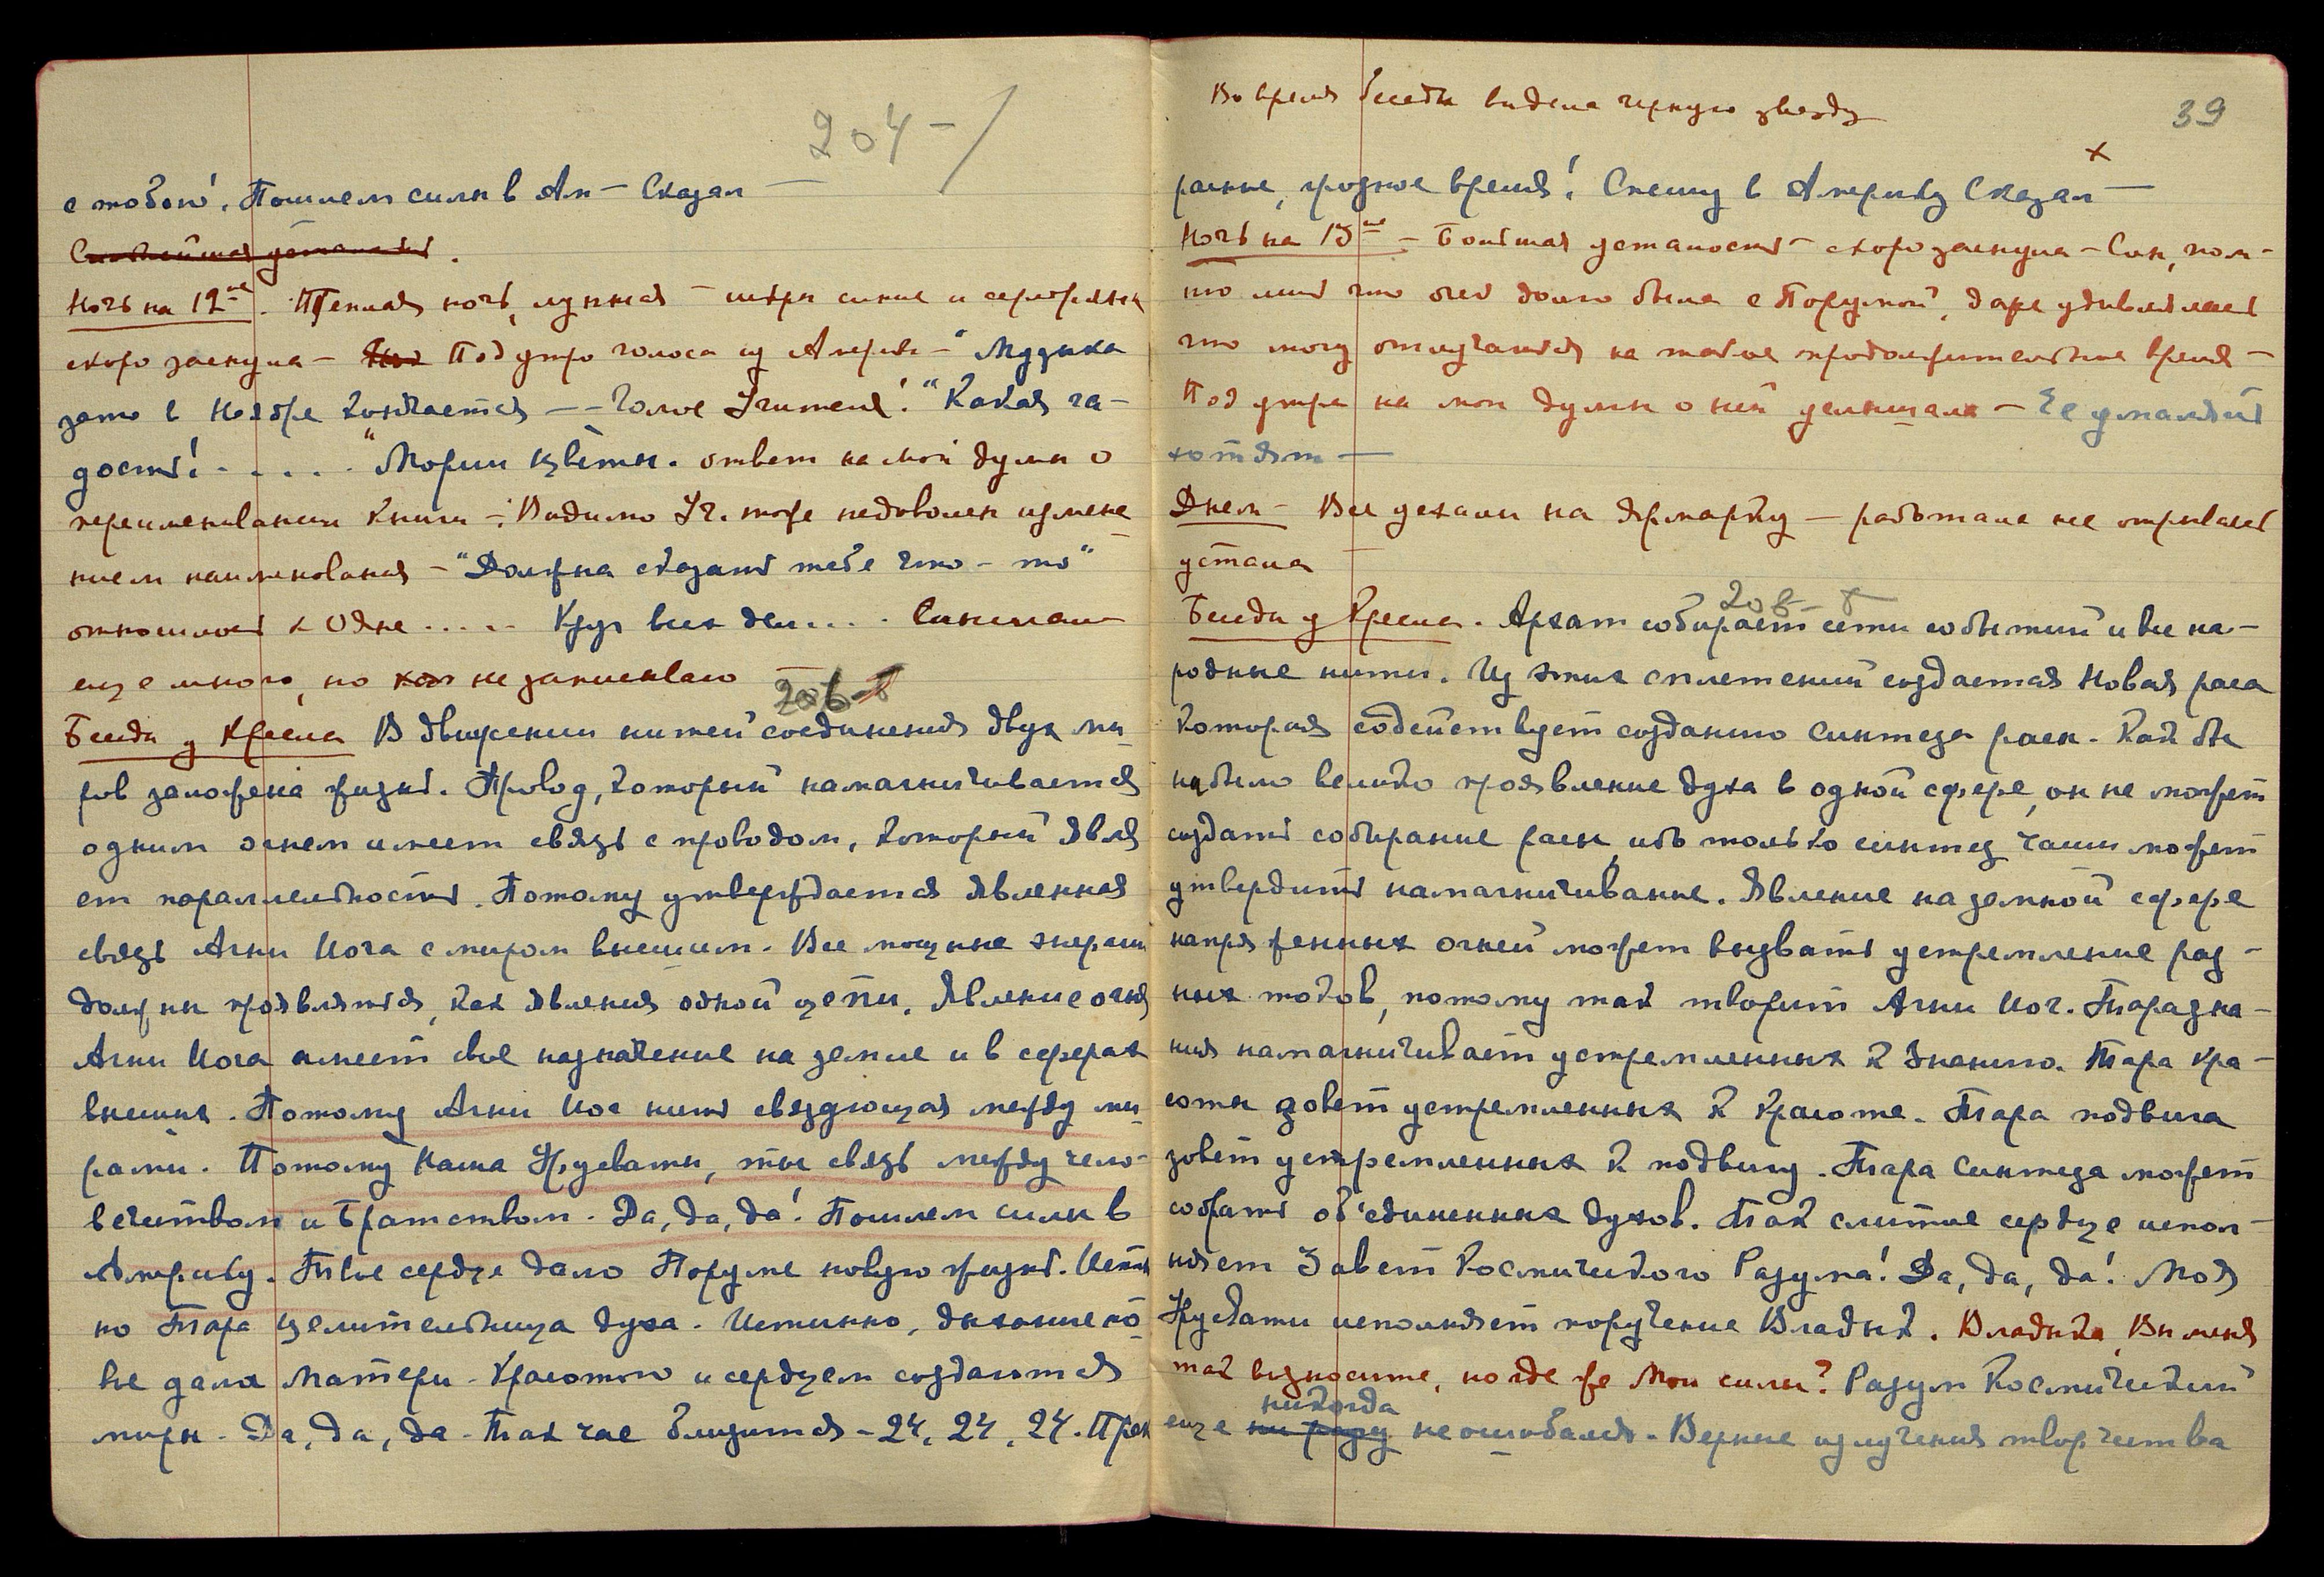 204-/
с тобой. Пошлем силы в Ам — Сказал —
Сильнейшая усталость.
Ночь на 12ое. Теплая ночь, лунная — искры синие и серебряные
скоро заснула — Под утро голоса из Америки — "Музыка
зато в Ноябре кончается — — Голос Учителя. "Какая га-
дость! . . . . . "Мории цветы. ответ на мои думы о
переименовании книги —. Видимо Уч. тоже недоволен измене
нием наименования — "Должна сказать тебе что-то"
относилось к Одне . . . . Круг всех дел . . . . Слышала
еще много, но не записываю
206-8
Беседа у Кресла В движении нитей соединения двух ми-
ров заложена жизнь. Провод, который намагничивается
одним огнем имеет связь с проводом, который явля
ет параллельность. Потому утверждается явленная
связь Агни Йога с миром внешним. Все мощные энергии
должны проявляться, как явления одной цепи. Явление огня
Агни Йога имеет свое назначение на земле и в сферах
внешних. Потому Агни Йог нить связующая между ми-
рами. Потому Наша Урусвати, ты связь между чело-
вечеством и Братством. Да, да, да! Пошлем силы в
Америку. Твое сердце дало Поруме новую жизнь. Истин
но Тара целительница духа. Истинно, дыхание но-
вое дала Матери. Красотою и сердцем создаются
миры. Да, да, да. Так час близится — 24, 24, 24. Прек
Во время беседы видела черную звезду
39
х
расное, грозное время! Спешу в Америку Сказал —
Ночь на 13ое — Большая усталость — скоро заснула — Сны, пом-
ню лишь что очень долго была с Порумой, даже удивлялась
что могу отлучаться на такое продолжительное время —
Под утро на мои думы о ней услышала — Ее умалять
хотят —
Днем — Все уехали на Ярмарку — работала не отрываясь
устала
208-8
Беседа у Кресла. Архат собирает сети событий и все на-
родные нити. Из этих сплетений создается Новая раса
которая содействует созданию синтеза расы. Как бы
ни было велико проявление духа в одной сфере, он не может
создать собирание расы, ибо только синтез чаши может
утвердить намагничивание. Явление на земной сфере
напряженных огней может вызвать устремление раз-
ных токов, потому так творит Агни Йог. Тара зна-
ния намагничивает устремленных к Знанию. Тара Кра-
соты зовет устремленных к Красоте. Тара подвига
зовет устремленных к подвигу. Тара Синтеза может
собрать об'единенных духов. Так слитые сердце испол-
няет Завет Космического Разума! Да, да, да! Моя
Урусвати исполняет поручение Владык. Владыка, Вы меня
так возносите, но где же Мои силы? Разум Космический
никогда
еще ни разу не ошибался. Верные излучения творчества